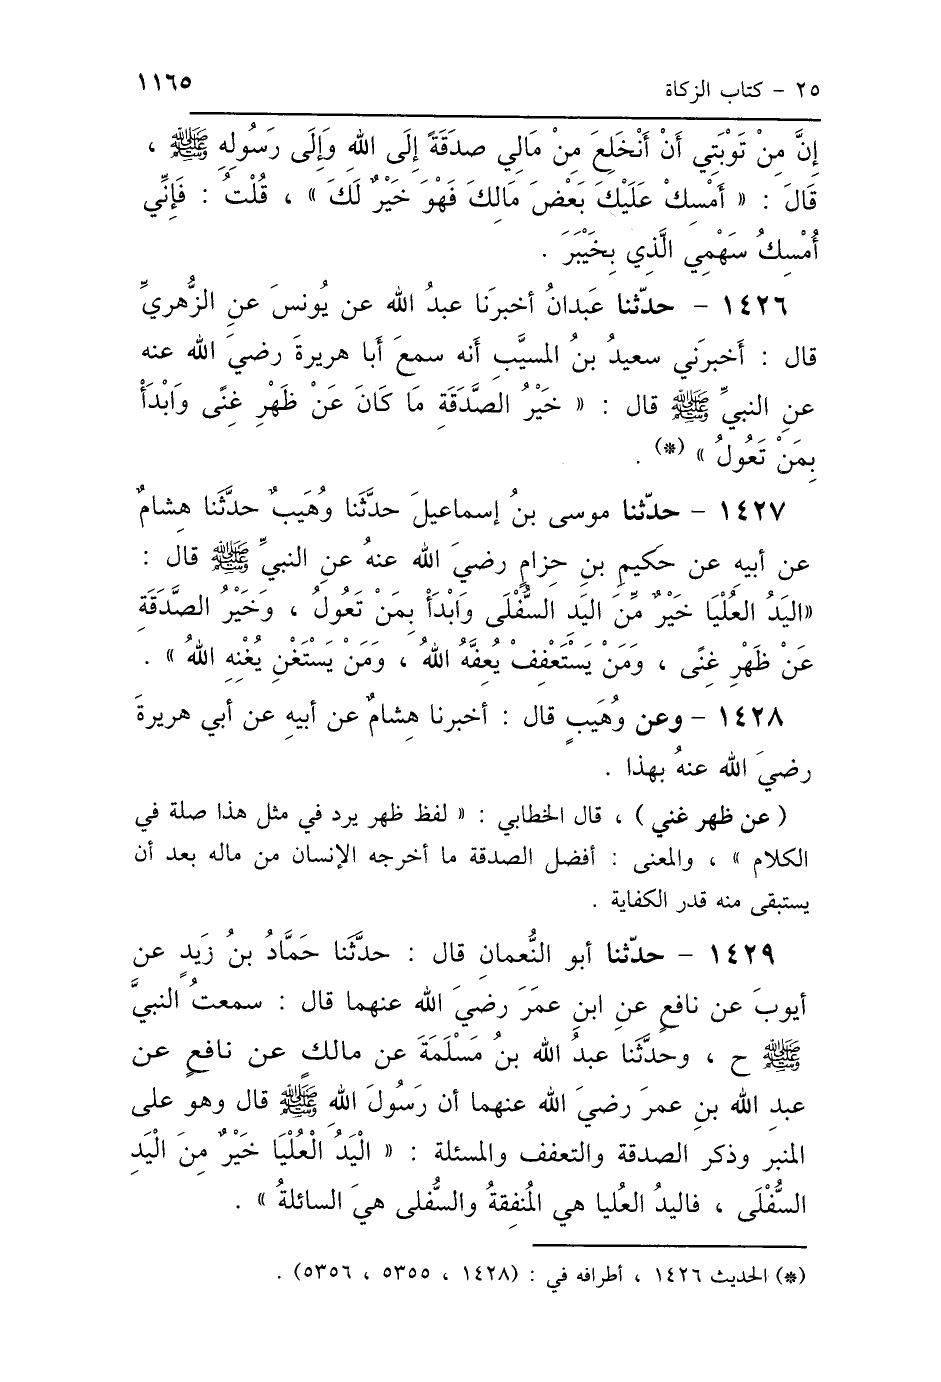 ٢٥ - كتاب الزكاة ١١٦٥
إِنَّ مِنْ تَوْبَتِي أَنْ أَنْخَلِعَ مِنْ مَالِي صدَقَةً إِلَى اللهِ وَإِلَى رَسُولِهِ ﷺ ،
قَالَ : « أَمْسِكْ عَلَيْكَ بَعْضَ مَالِكَ فَهْوَ خَيْرٌ لَكَ » ، قُلْتُ : فَإِنِّي
أُمْسِكُ سَهْمِي الَّذِي بِخَيْبَرَ .
١٤٢٦ - حدّثنا عَبدانُ أخبرَنا عبدُ الله عن يُونسَ عنِ الزُّهريِّ
قال : أَخبرَني سعيدُ بنُ المسيَّبِ أَنه سمعَ أَبا هريرةَ رضيَ الله عنه
عنِ النبيِّ ﷺ قال : « خَيْرُ الصَّدَقَةِ مَا كَانَ عَنْ ظَهْرِ غِنًى وَابْدَأْ
بِمَنْ تَعُولُ » (*) .
١٤٢٧ - حدّثنا موسى بنُ إسماعيلَ حدَّثَنا وُهَيبٌ حدَّثَنا هِشامٌ
عن أبيهِ عن حَكيمِ بنِ حِزامٍ رضيَ الله عنهُ عنِ النبيِّ ﷺ قال :
«اليَدُ العُلْيَا خَيْرٌ مِّنَ اليَدِ السُّفْلَى وَابْدَأْ بِمَنْ تَعُولُ ، وَخَيْرُ الصَّدَقَةِ
عَنْ ظَهْرِ غِنًى ، وَمَنْ يَسْتَعْفِفْ يُعِفَّهُ اللهُ ، وَمَنْ يَسْتَغْنِ يُغْنِهِ اللهُ » .
١٤٢٨ - وعن وُهَيبٍ قال : أخبرنا هِشامٌ عن أبيهِ عن أبي هريرةَ
رضيَ الله عنهُ بِهذا .
( عن ظهر غني ) ، قال الخطابي : « لفظ ظهر يرد في مثل هذا صلة في
الكلام » ، والمعنى : أفضل الصدقة ما أخرجه الإنسان من ماله بعد أن
يستبقى منه قدر الكفاية .
١٤٢٩ - حدّثنا أبو النُّعمانِ قال : حدَّثَنا حَمَّادُ بنُ زَيدٍ عن
أيوبَ عن نافعٍ عنِ ابنِ عمَرَ رضيَ الله عنهما قال : سمعتُ النبيَّ
ﷺ ح ، وحدَّثَنا عبدُ الله بنُ مَسْلَمَةَ عن مالكٍ عن نافعٍ عن
عبدِ الله بنِ عمرَ رضيَ الله عنهما أن رَسُولَ اللهِ ﷺ قال وهو على
المنبر وذكر الصدقة والتعفف والمسئلة : « الْيَدُ الْعُلْيَا خَيْرٌ مِنَ الْيَدِ
السُّفْلَى ، فاليدُ العُليا هي المُنفِقةُ والسُّفلى هيَ السائلةُ » .
(*) الحديث ١٤٢٦ ، أطرافه في : (١٤٢٨ ، ٥٣٥٥ ، ٥٣٥٦) .